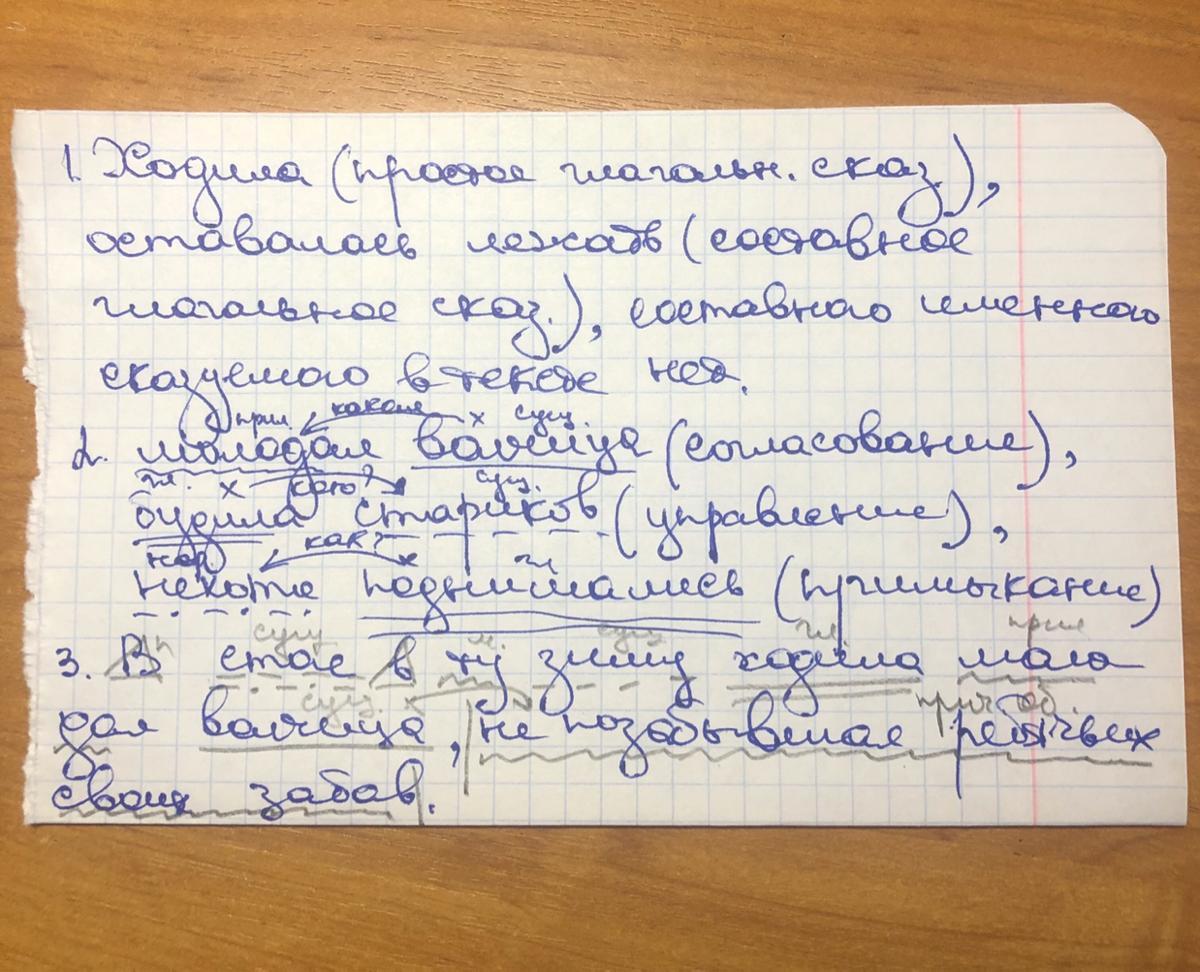 1. Ходила (простое глагольн. сказ.),
оставалась лежать (составное
глагольное сказ.), составного именного
сказуемого в тексте нет.
прил. какая x сущ.
2. молодая волчица (согласование),
гл. x кого? сущ.
будила стариков (управление),
нар как? x гл
нехотя поднимались (примыкание)
п сущ м. сущ гл. прил
3. В стае в ту зиму ходила моло
сущ. x прич. об.
дая волчица, не позабывшая ребячьих
своих забав.